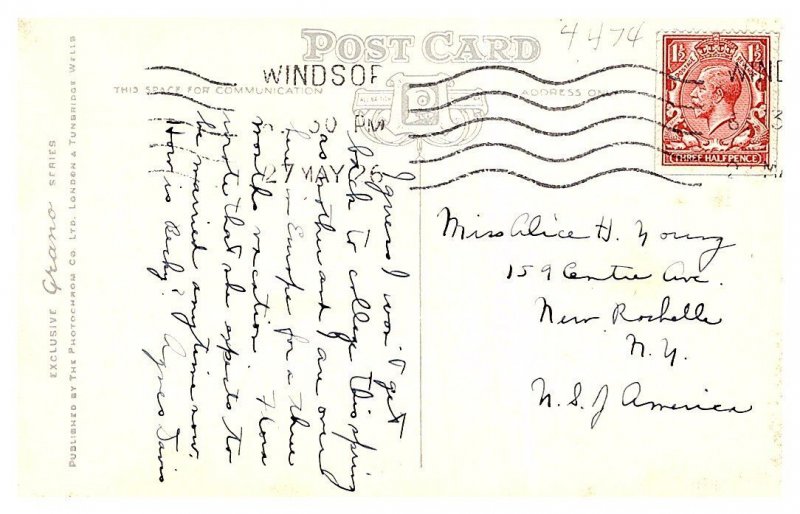 4474
POST CARD
THIS SPACE FOR COMMUNICATION
ADDRESS ONLY
WINDSOR
30 PM
27 MAY 26
1½ 1½
THREE HALFPENCE
EXCLUSIVE Grano SERIES
PUBLISHED BY THE PHOTOCHROM CO. LTD. LONDON & TUNBRIDGE WELLS
I guess I won't get
back to college this spring
as mother and I are over
here in Europe for a three
months vacation. Flora
wrote that she expects to
be married anytime now.
How is Becky? Agnes Davis
Miss Alice H. Young
159 Centre Ave.
New Rochelle
N.Y.
U.S. of America